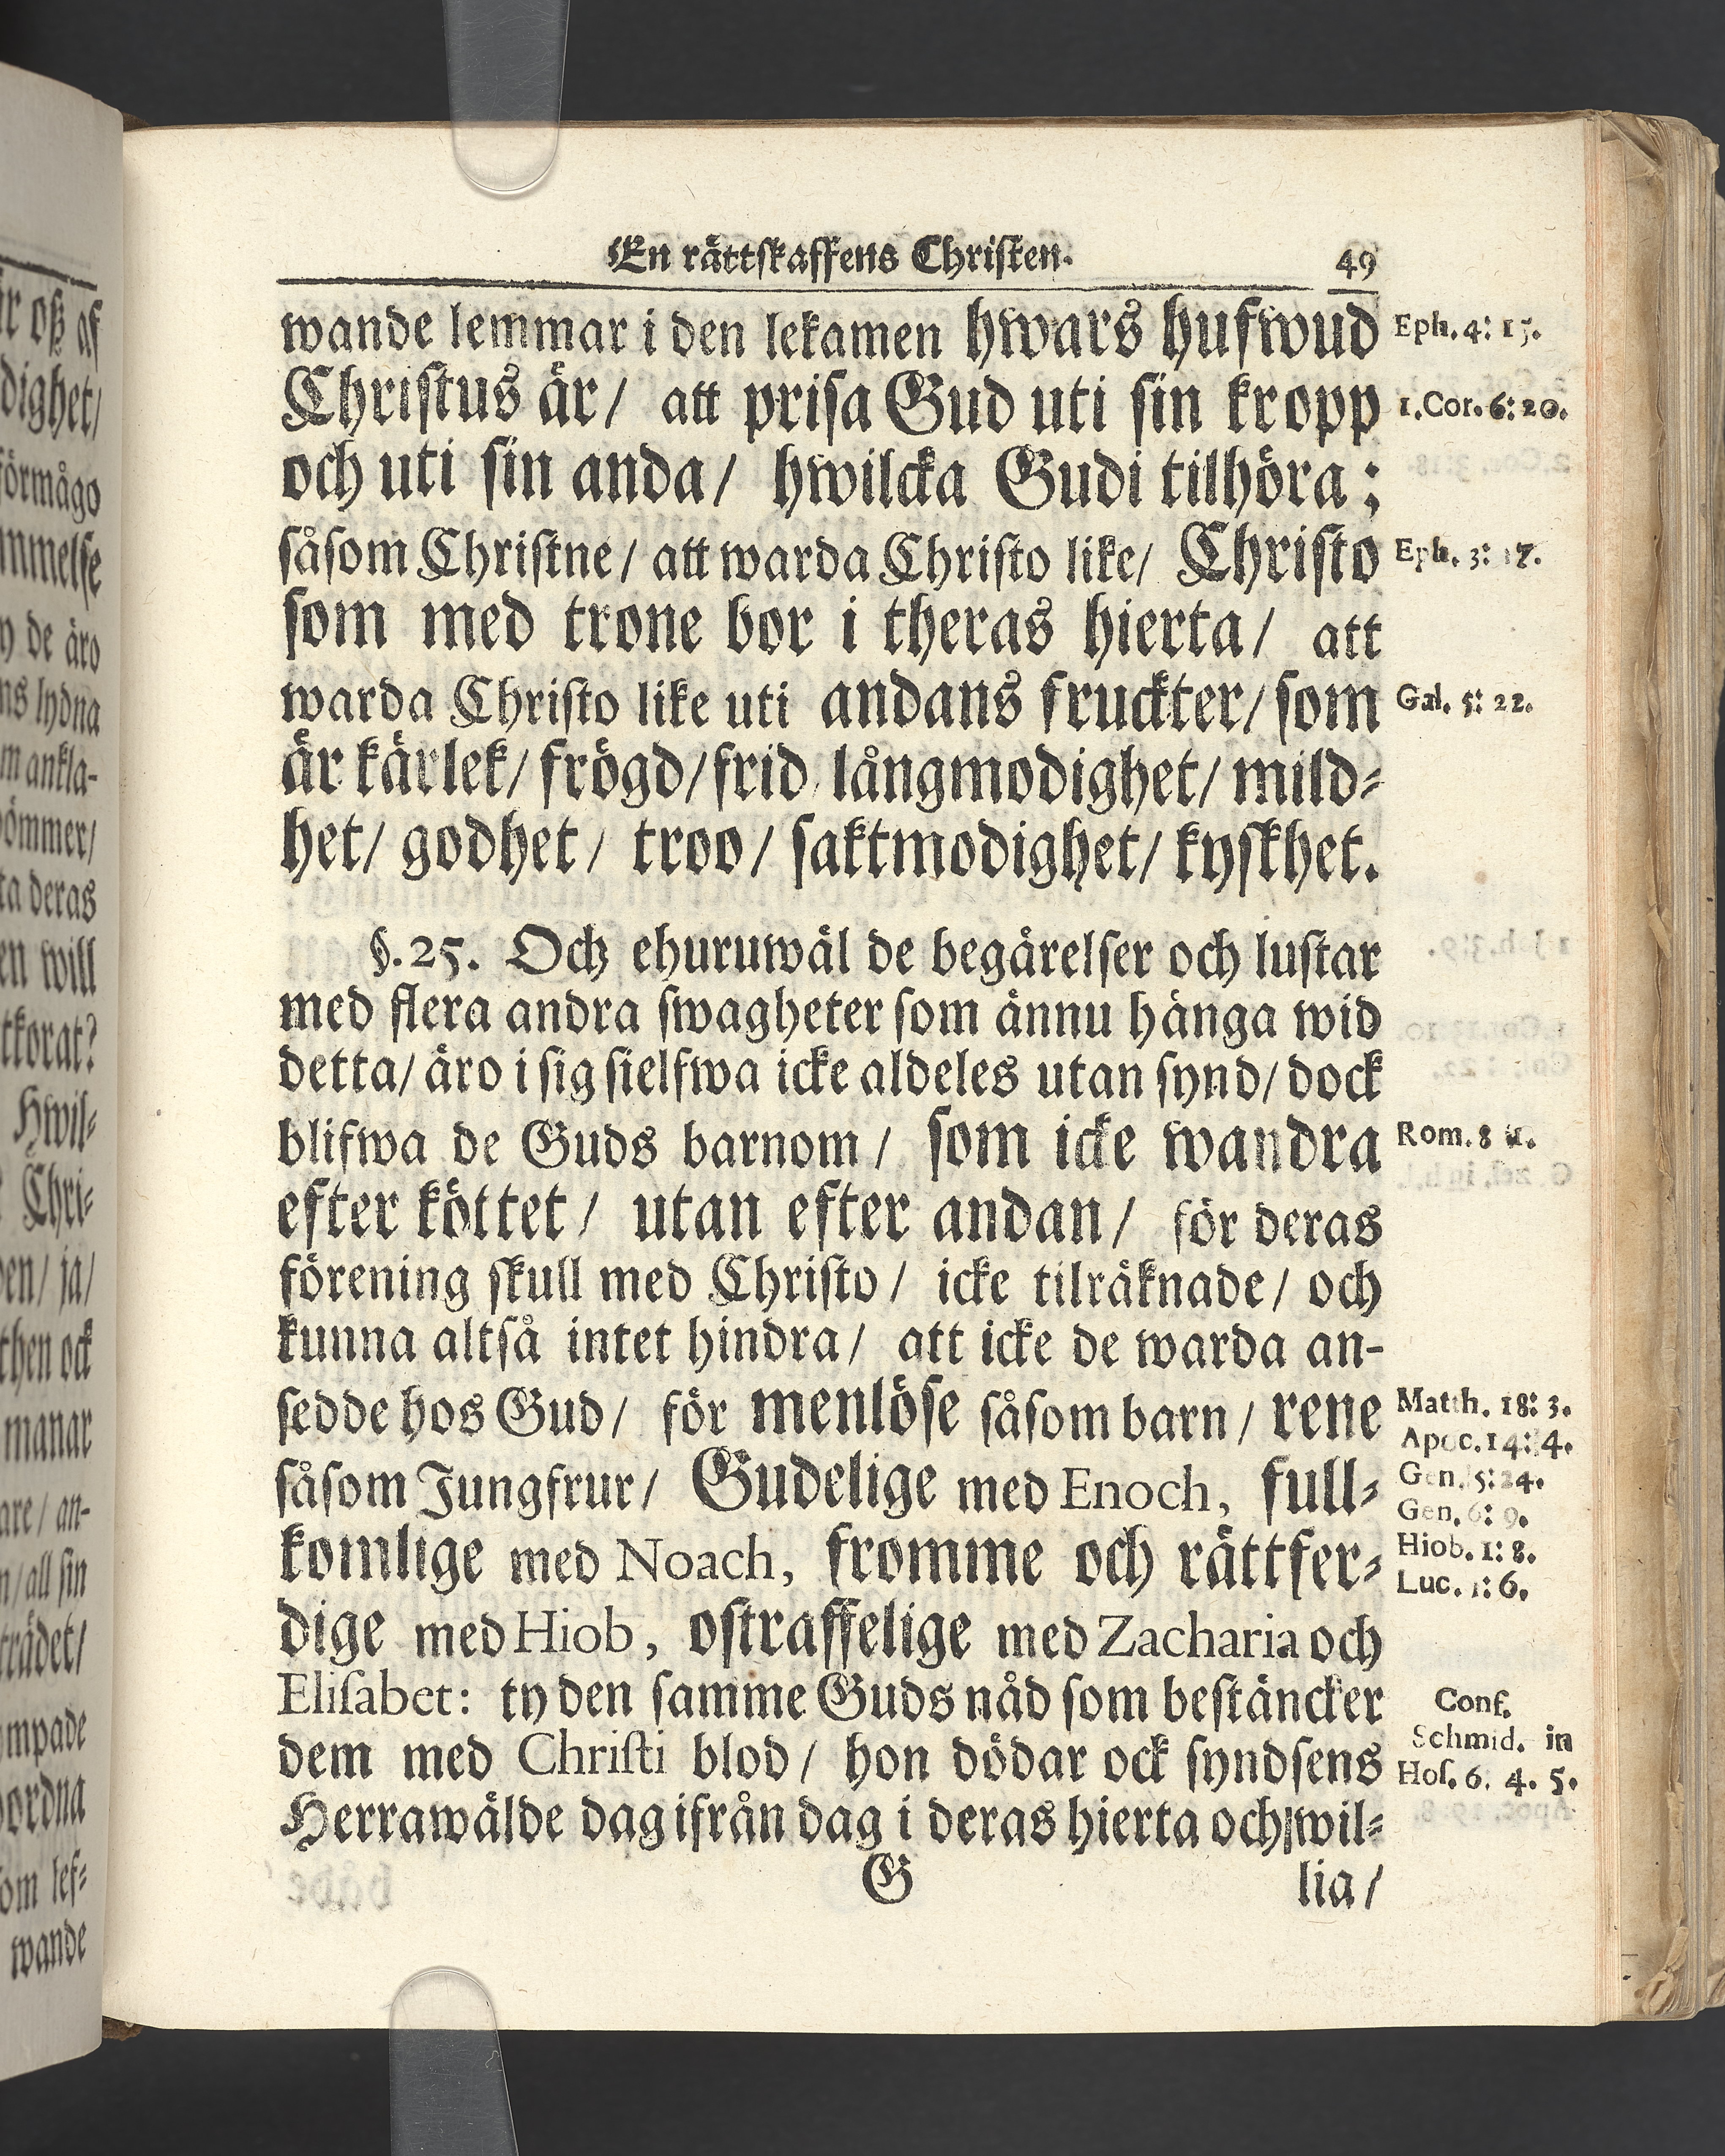 En rättskaffens Christen.
49
wande lemmar i den lekamen hwars hufwud
Eph. 4: 15.
Christus är/ att prisa Gud uti sin kropp
1. Cor. 6: 20.
och uti sin anda/ hwilcka Gudi tilhöra;
såsom Christne/ att warda Christo like/ Christo
Eph. 3: 17.
som med trone bor i theras hierta/ att
warda Christo like uti andans fruckter/ som
Gal. 5: 22.
är kärlek/ frögd/ frid/ långmodighet/ mild-
het/ godhet/ troo/ saktmodighet/ kyskhet.
§. 25. Och ehuruwäl de begärelser och lustar
med flera andra swagheter som ännu hänga wid
detta/ äro i sig sielfwa icke aldeles utan synd/ dock
blifwa de Guds barnom/ som icke wandra
Rom. 8 : 1.
efter köttet/ utan efter andan/ för deras
förening skull med Christo/ icke tilräknade/ och
kunna altså intet hindra/ att icke de warda an-
sedde hos Gud/ för menlöse såsom barn/ rene
Matth. 18: 3.
Apoc. 14: 4.
såsom Jungfrur/ Gudelige med Enoch, full-
Gen. 5: 24.
Gen. 6: 9.
komlige med Noach, fromme och rättfer-
Hiob. 1: 8.
Luc. 1: 6.
dige med Hiob, ostraffelige med Zacharia och
Elisabet: ty den samme Guds nåd som bestäncker
Conf.
dem med Christi blod/ hon dödar ock syndsens
Schmid. in
Hos. 6. 4. 5.
Herrawälde dag ifrån dag i deras hierta och wil-
G
lia/